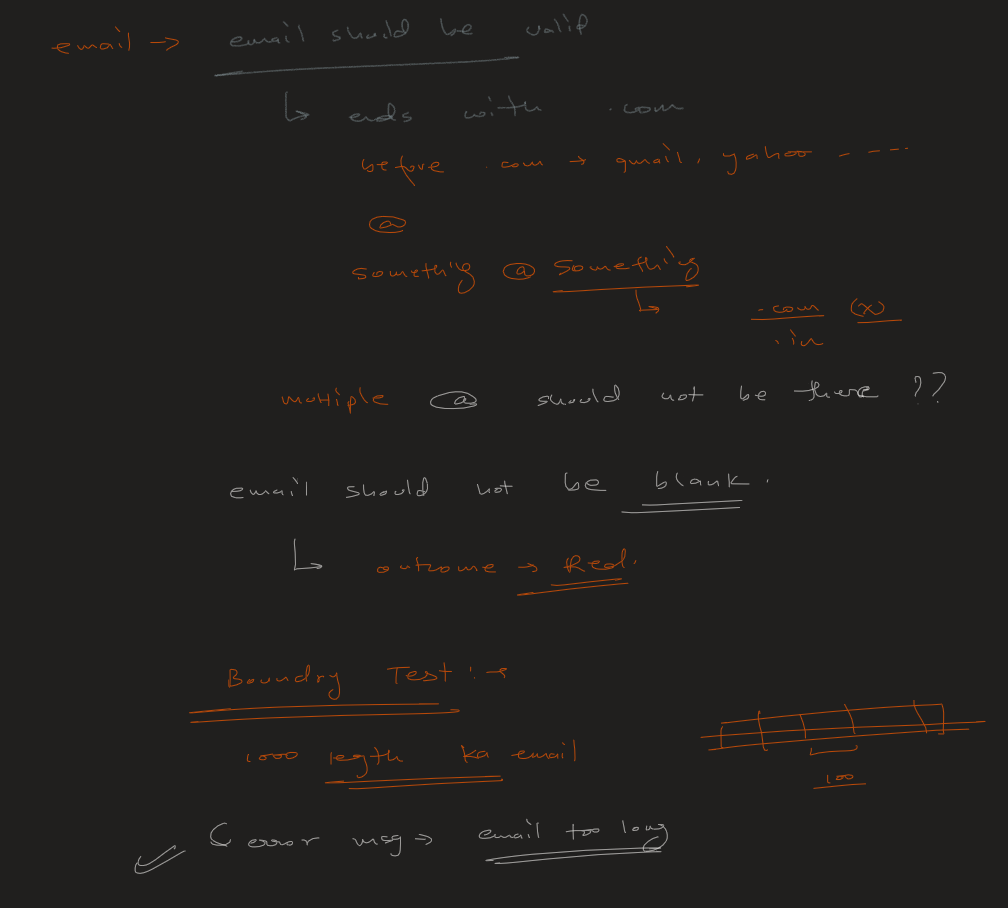 email → email should be valid
↳ ends with .com
before .com → gmail, yahoo - - - - -
@
something @ something
↳ .com (x)
.in
multiple @ should not be there ??
email should not be blank.
↳ outcome → Red.
Boundry Test :→
1000 legth ka email
100
error msg → email too long